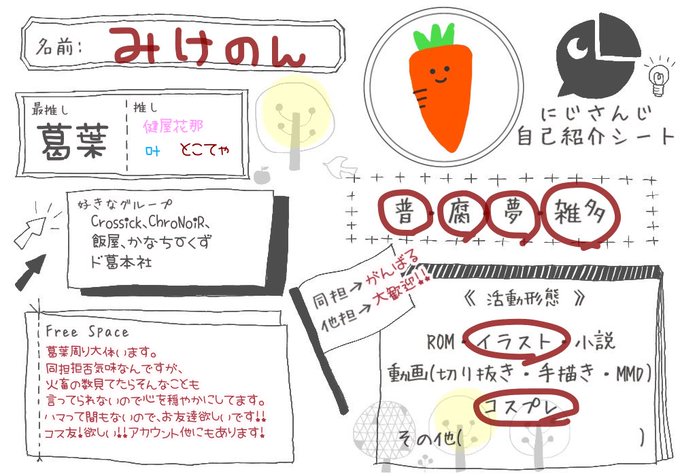 名前: みけのん
にじさんじ
自己紹介シート
最推し
葛葉
推し
健屋花那
叶 とこてゃ
普・腐・夢・雑多
好きなグループ
Crossick、ChroNoiR、
飯屋、かなちろくず
ド葛本社
同担→がんばる
他担→大歓迎!!
《 活動形態 》
ROM・イラスト・小説
動画(切り抜き・手描き・MMD)
コスプレ
その他( )
Free Space
葛葉周り大体います。
同担拒否気味なんですが、
火畜の数見てたらそんなことも
言ってられないので心を穏やかにしてます。
ハマって間もないので、お友達欲しいです!!
コス友!欲しい!!アカウント他にもあります!